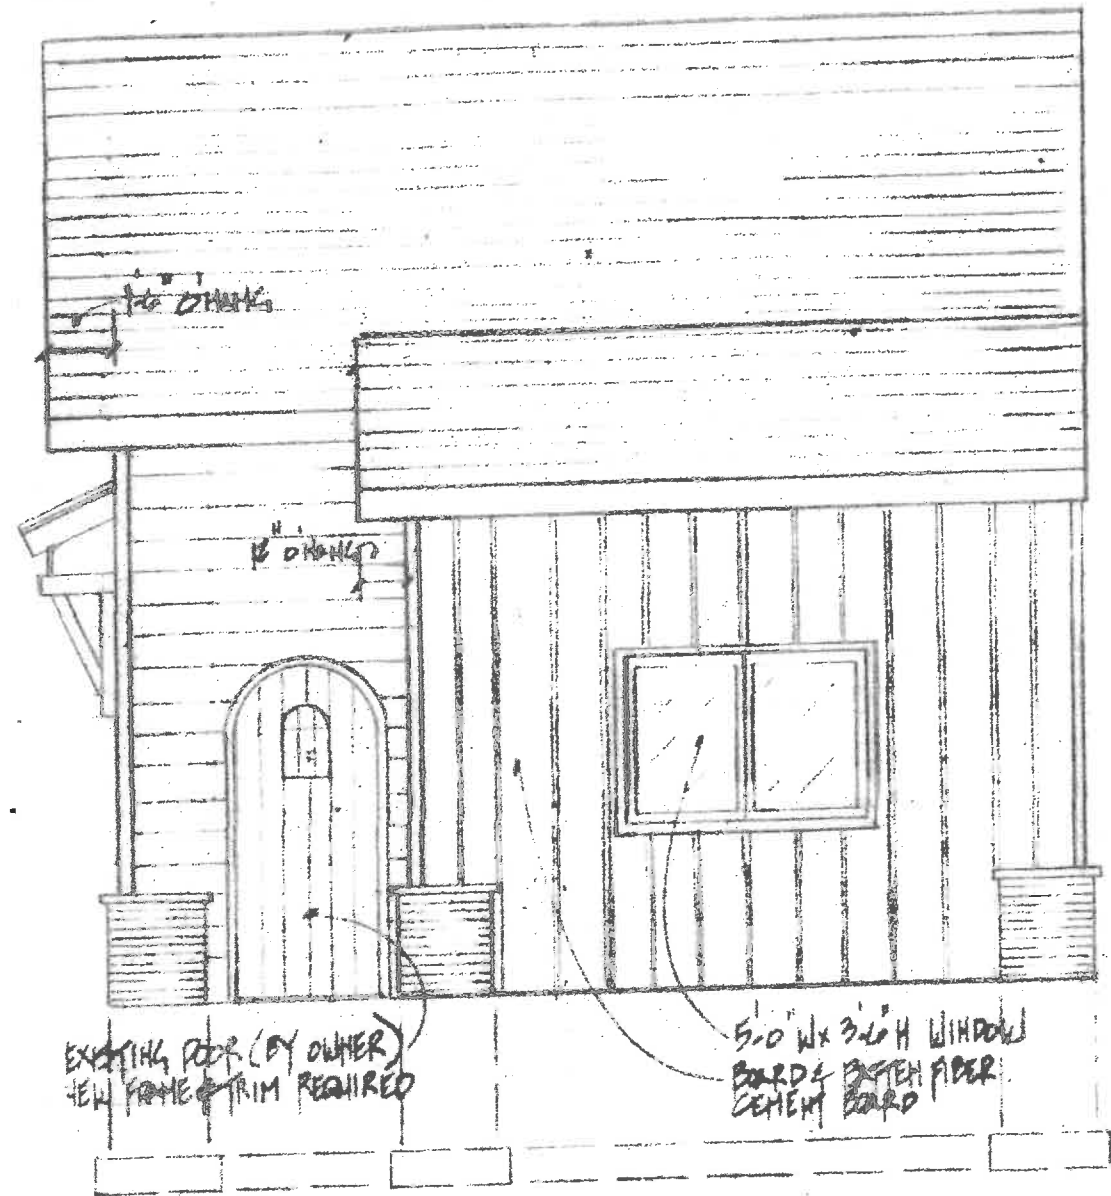 1'-6" O'HANG
16" O'HANG
EXISTING DOOR (BY OWNER)
NEW FRAME & TRIM REQUIRED
5'-0" W x 3'-6" H WINDOW
BOARD & BATTEN FIBER
CEMENT BOARD